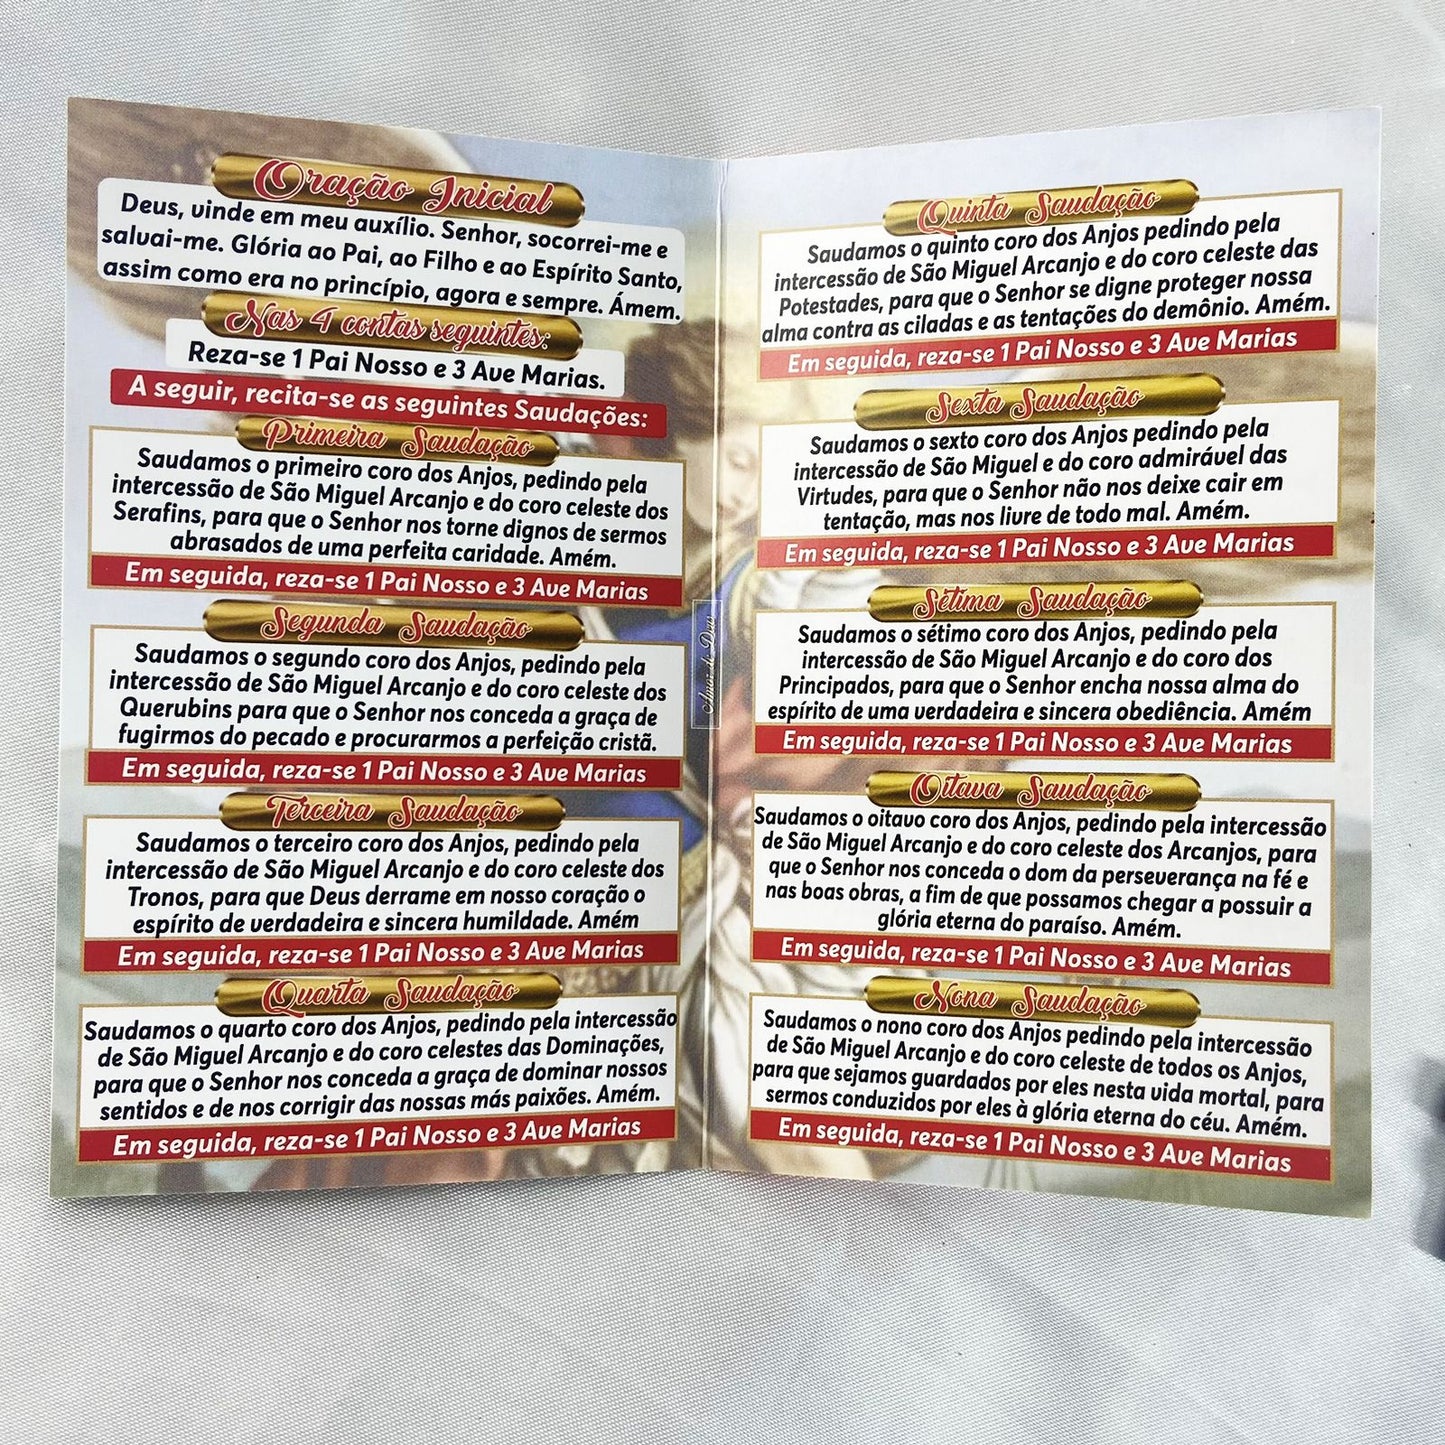 Oração Inicial
Deus, vinde em meu auxílio. Senhor, socorrei-me e
salvai-me. Glória ao Pai, ao Filho e ao Espírito Santo,
assim como era no princípio, agora e sempre. Ámem.
Nas 4 contas seguintes:
Reza-se 1 Pai Nosso e 3 Ave Marias.
A seguir, recita-se as seguintes Saudações:
Primeira Saudação
Saudamos o primeiro coro dos Anjos, pedindo pela
intercessão de São Miguel Arcanjo e do coro celeste dos
Serafins, para que o Senhor nos torne dignos de sermos
abrasados de uma perfeita caridade. Amém.
Em seguida, reza-se 1 Pai Nosso e 3 Ave Marias
Segunda Saudação
Saudamos o segundo coro dos Anjos, pedindo pela
intercessão de São Miguel Arcanjo e do coro celeste dos
Querubins para que o Senhor nos conceda a graça de
fugirmos do pecado e procurarmos a perfeição cristã.
Em seguida, reza-se 1 Pai Nosso e 3 Ave Marias
Terceira Saudação
Saudamos o terceiro coro dos Anjos, pedindo pela
intercessão de São Miguel Arcanjo e do coro celeste dos
Tronos, para que Deus derrame em nosso coração o
espírito de verdadeira e sincera humildade. Amém
Em seguida, reza-se 1 Pai Nosso e 3 Ave Marias
Quarta Saudação
Saudamos o quarto coro dos Anjos, pedindo pela intercessão
de São Miguel Arcanjo e do coro celestes das Dominações,
para que o Senhor nos conceda a graça de dominar nossos
sentidos e de nos corrigir das nossas más paixões. Amém.
Em seguida, reza-se 1 Pai Nosso e 3 Ave Marias
Quinta Saudação
Saudamos o quinto coro dos Anjos pedindo pela
intercessão de São Miguel Arcanjo e do coro celeste das
Potestades, para que o Senhor se digne proteger nossa
alma contra as ciladas e as tentações do demônio. Amém.
Em seguida, reza-se 1 Pai Nosso e 3 Ave Marias
Sexta Saudação
Saudamos o sexto coro dos Anjos pedindo pela
intercessão de São Miguel e do coro admirável das
Virtudes, para que o Senhor não nos deixe cair em
tentação, mas nos livre de todo mal. Amém.
Em seguida, reza-se 1 Pai Nosso e 3 Ave Marias
Sétima Saudação
Saudamos o sétimo coro dos Anjos, pedindo pela
intercessão de São Miguel Arcanjo e do coro dos
Principados, para que o Senhor encha nossa alma do
espírito de uma verdadeira e sincera obediência. Amém
Em seguida, reza-se 1 Pai Nosso e 3 Ave Marias
Oitava Saudação
Saudamos o oitavo coro dos Anjos, pedindo pela intercessão
de São Miguel Arcanjo e do coro celeste dos Arcanjos, para
que o Senhor nos conceda o dom da perseverança na fé e
nas boas obras, a fim de que possamos chegar a possuir a
glória eterna do paraíso. Amém.
Em seguida, reza-se 1 Pai Nosso e 3 Ave Marias
Nona Saudação
Saudamos o nono coro dos Anjos pedindo pela intercessão
de São Miguel Arcanjo e do coro celeste de todos os Anjos,
para que sejamos guardados por eles nesta vida mortal, para
sermos conduzidos por eles à glória eterna do céu. Amém.
Em seguida, reza-se 1 Pai Nosso e 3 Ave Marias